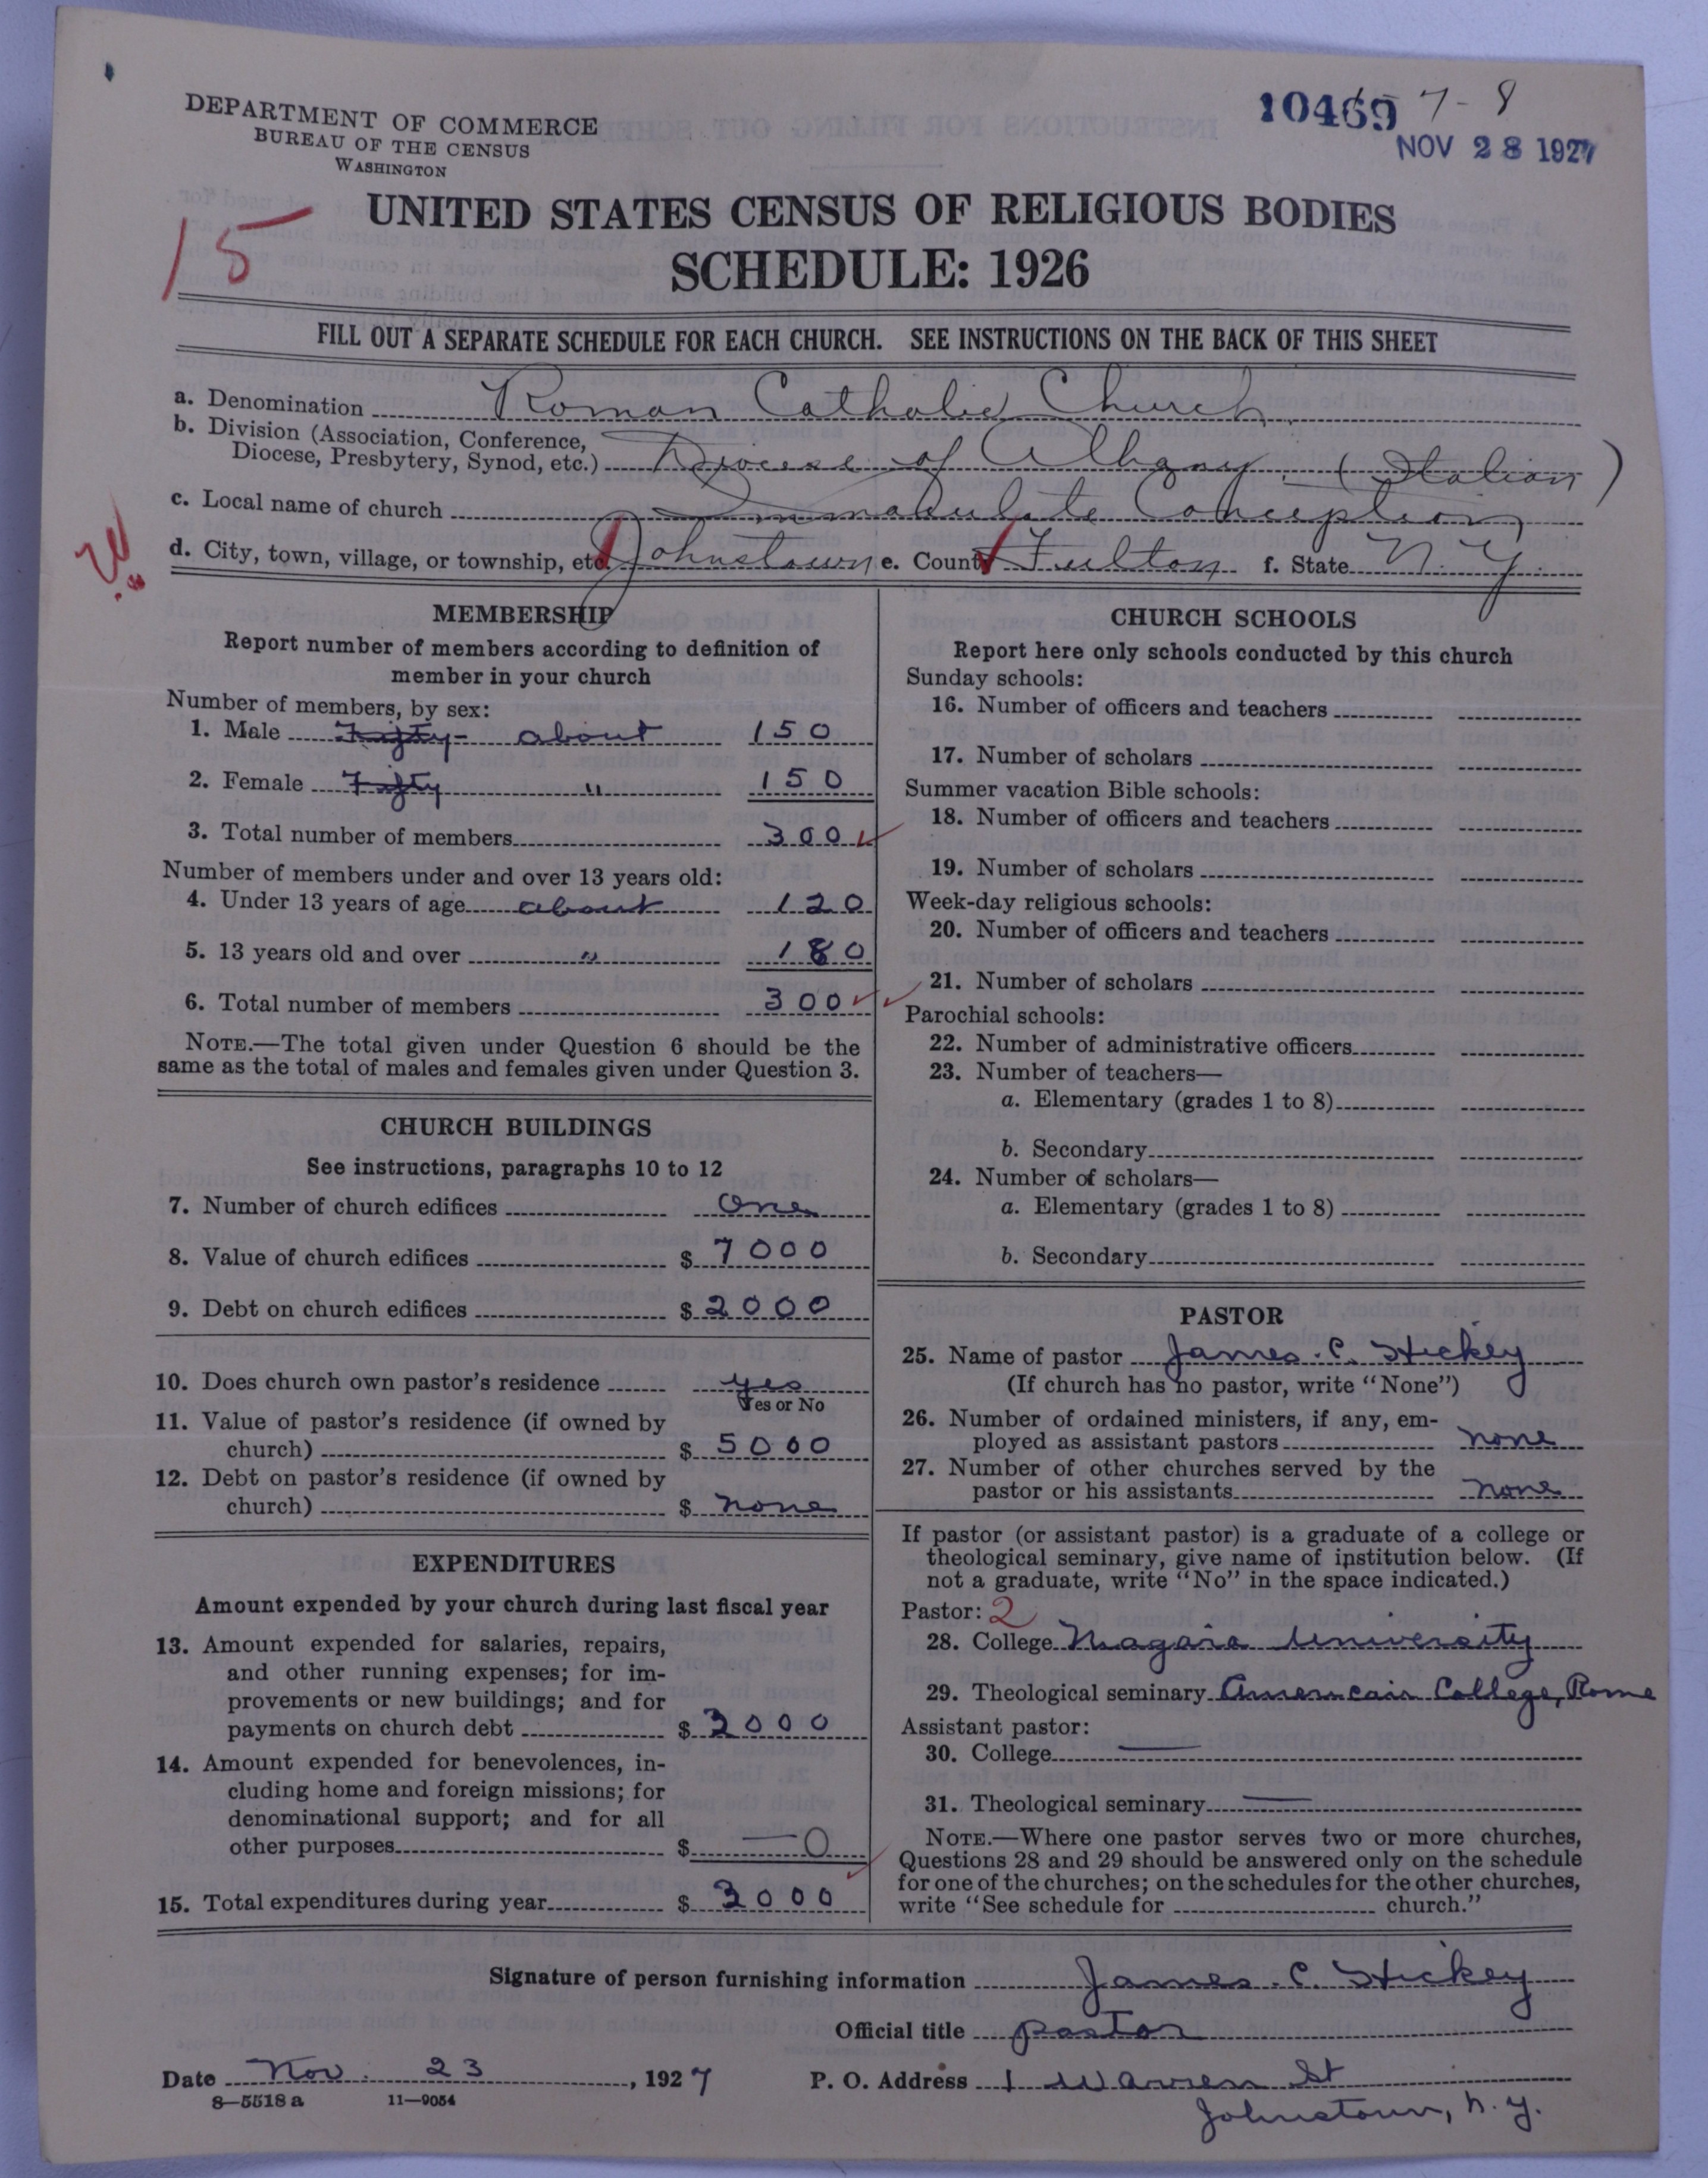 DEPARTMENT OF COMMERCE
BUREAU OF THE CENSUS
WASHINGTON
10469 7-8
NOV 28 1927
15
UNITED STATES CENSUS OF RELIGIOUS BODIES
SCHEDULE: 1926
FILL OUT A SEPARATE SCHEDULE FOR EACH CHURCH. SEE INSTRUCTIONS ON THE BACK OF THIS SHEET
a. Denomination Roman Catholic Church
b. Division (Association, Conference,
Diocese, Presbytery, Synod, etc.) Diocese of Albany (Italian)
c. Local name of church Immaculate Conception
d. City, town, village, or township, etc. Johnstown e. County Fulton f. State N.Y.
MEMBERSHIP
Report number of members according to definition of
member in your church
Number of members, by sex:
1. Male Fifty- about 150
2. Female Fifty " 150
3. Total number of members 300
Number of members under and over 13 years old:
4. Under 13 years of age about 120
5. 13 years old and over " 180
6. Total number of members 300
NOTE.—The total given under Question 6 should be the
same as the total of males and females given under Question 3.
CHURCH BUILDINGS
See instructions, paragraphs 10 to 12
7. Number of church edifices one
8. Value of church edifices $ 7000
9. Debt on church edifices $ 2000
10. Does church own pastor's residence yes
Yes or No
11. Value of pastor's residence (if owned by
church) $ 5000
12. Debt on pastor's residence (if owned by
church) $ none
EXPENDITURES
Amount expended by your church during last fiscal year
13. Amount expended for salaries, repairs,
and other running expenses; for im-
provements or new buildings; and for
payments on church debt $ 3000
14. Amount expended for benevolences, in-
cluding home and foreign missions; for
denominational support; and for all
other purposes $ —0
15. Total expenditures during year $ 3000
CHURCH SCHOOLS
Report here only schools conducted by this church
Sunday schools:
16. Number of officers and teachers
17. Number of scholars
Summer vacation Bible schools:
18. Number of officers and teachers
19. Number of scholars
Week-day religious schools:
20. Number of officers and teachers
21. Number of scholars
Parochial schools:
22. Number of administrative officers
23. Number of teachers—
a. Elementary (grades 1 to 8)
b. Secondary
24. Number of scholars—
a. Elementary (grades 1 to 8)
b. Secondary
PASTOR
25. Name of pastor James C. Hickey
(If church has no pastor, write "None")
26. Number of ordained ministers, if any, em-
ployed as assistant pastors none
27. Number of other churches served by the
pastor or his assistants none
If pastor (or assistant pastor) is a graduate of a college or
theological seminary, give name of institution below. (If
not a graduate, write "No" in the space indicated.)
Pastor: 2
28. College Niagara University
29. Theological seminary American College, Rome
Assistant pastor:
30. College —
31. Theological seminary —
NOTE.—Where one pastor serves two or more churches,
Questions 28 and 29 should be answered only on the schedule
for one of the churches; on the schedules for the other churches,
write "See schedule for church."
Signature of person furnishing information James C. Hickey
Official title pastor
Date Nov. 23, 1927 P. O. Address 1 Warren St
8—5518 a 11—9054
Johnstown, N.Y.